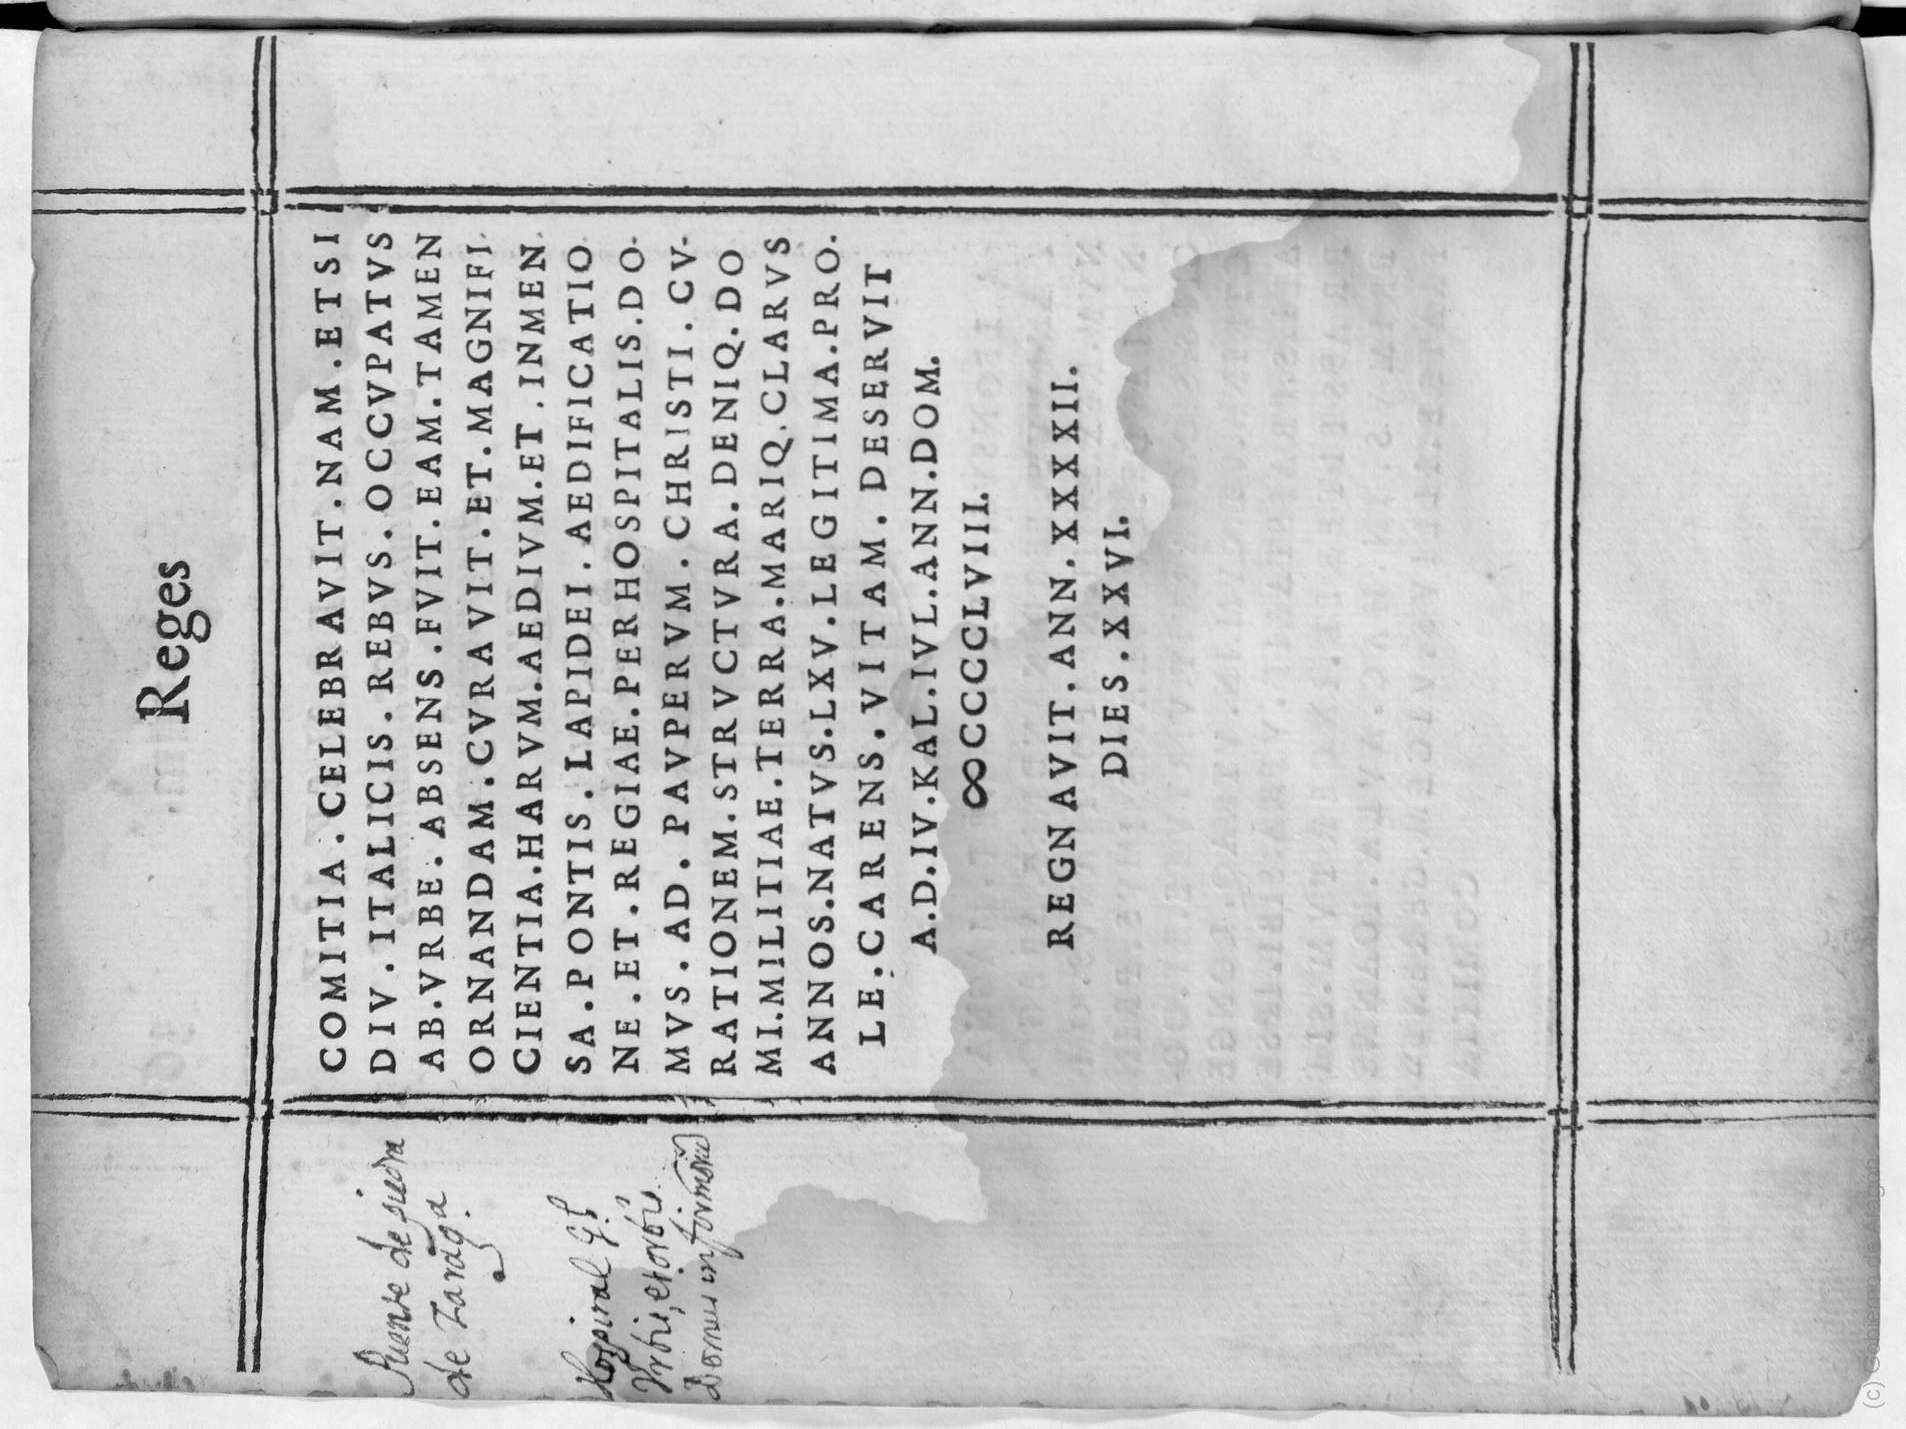 Reges
COMITIA.CELEBRAVIT.NAM.ETSI
DIV.ITALICIS.REBVS.OCCVPATVS
AB.VRBE.ABSENS.FVIT.EAM.TAMEN
ORNANDAM.CVRAVIT.ET.MAGNIFI.
CIENTIA.HARVM.AEDIVM.ET.INMEN
SA.PONTIS.LAPIDEI.AEDIFICATIO
NE.ET.REGIAE.PERHOSPITALIS.DO.
MVS.AD.PAVPERVM.CHRISTI.CV.
RATIONEM.STRVCTVRA.DENIQ.DO
MI.MILITIAE.TERRA.MARIQ.CLARVS
ANNOS.NATVS.LXV.LEGITIMA.PRO.
LE.CARENS.VITAM.DESERVIT
A.D.IV.KAL.IVL.ANN.DOM.
ꝏCCCCLVIII.
REGNAVIT.ANN.XXXXII.
DIES.XXVI.
Puente de piedra
de Zarag.ª
Hospital Gl.
Vrbis, et orbis
Domus infirmorũ
(c) Gobierno de Aragon